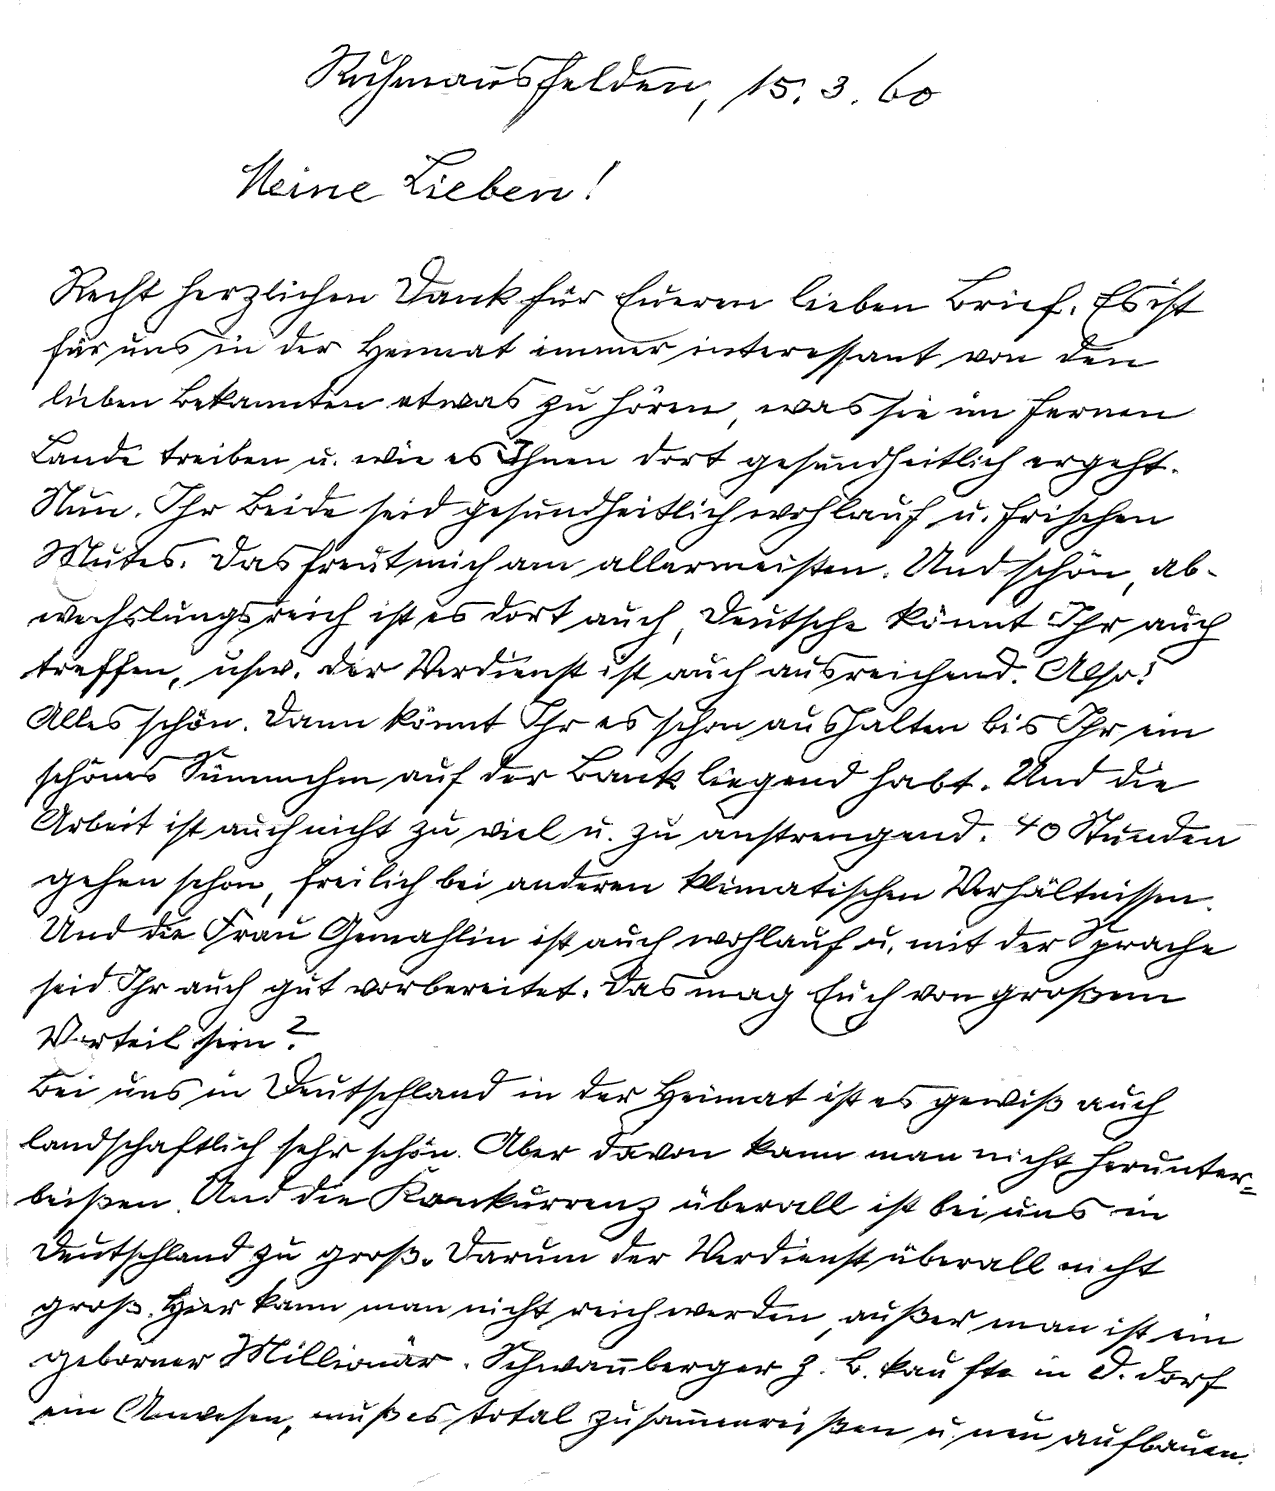 Ruhmannsfelden, 15. 3. 60
Meine Lieben!
Recht herzlichen Dank für Eueren lieben Brief. Es ist
für uns in der Heimat immer interessant von den
lieben Bekannten etwas zu hören, was sie im fernen
Lande treiben u. wie es Ihnen dort gesundheitlich ergeht.
Nun. Ihr Beide seid gesundheitlich wohlauf u. frischen
Mutes. Das freut mich am allermeisten. Und schön, ab-
wechslungsreich ist es dort auch, Deutsche könnt Ihr auch
treffen, usw. der Verdienst ist auch ausreichend. Also!
Alles schön. Dann könnt Ihr es schon aushalten bis Ihr ein
schönes Sümmchen auf der Bank liegend habt. Und die
Arbeit ist auch nicht zu viel u. zu anstrengend. 40 Stunden
gehen schon, freilich bei anderen klimatischen Verhältnissen.
Und die Frau Gemahlin ist auch wohlauf u. mit der Sprache
seid Ihr auch gut vorbereitet. Das mag Euch von großem
Vorteil sein?
Bei uns in Deutschland in der Heimat ist es gewiß auch
landschaftlich sehr schön. Aber davon kann man nicht herunter=
beißen. Und die Konkurrenz überall ist bei uns in
Deutschland zu groß. Darum der Verdienst überall nicht
groß. Hier kann man nicht reich werden, außer man ist ein
geborner Millionär. Schwannberger z. B. kaufte in D. dorf
ein Anwesen, muß es total zusammenreißen u. neu aufbauen.